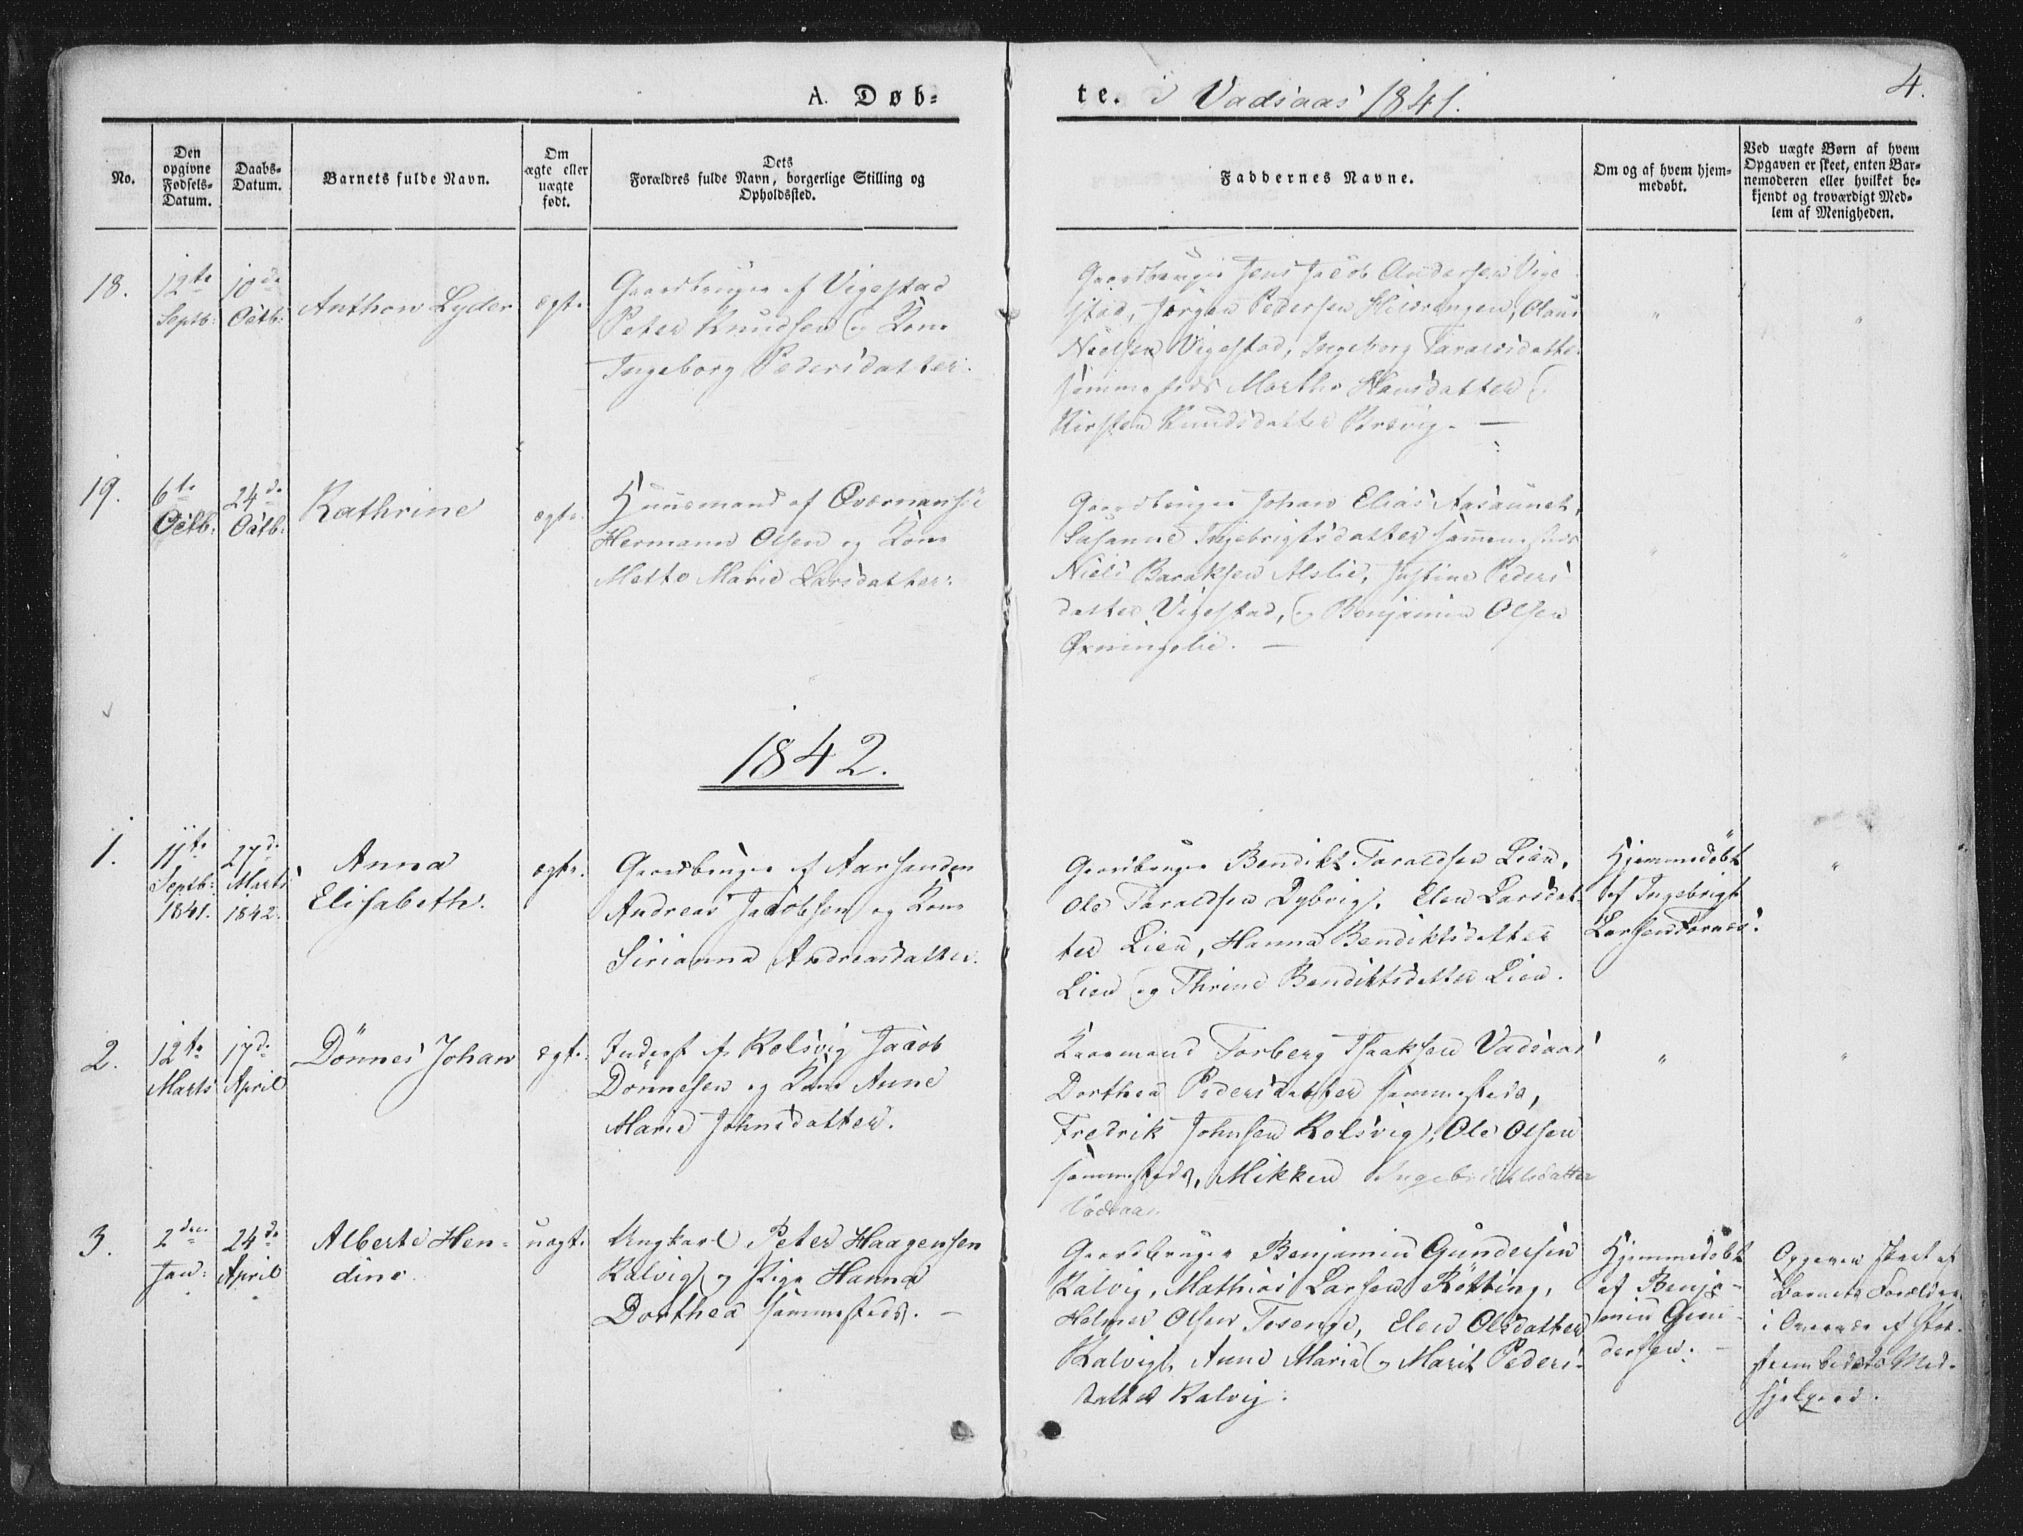 A. Døb-
te. i Vadsaas 1841.
4.
No.
Den opgivne Fødsels-Datum.
Daabs-Datum.
Barnets fulde Navn.
Om ægte eller uægte født.
Dets Forældres fulde Navn, borgerlige Stilling og Opholdssted.
Faddernes Navne.
Om og af hvem hjemmedøbt.
Ved uægte Børn af hvem Opgaven er skeet, enten Barnemoderen eller hvilket bekjendt og troværdigt Medlem af Menigheden.
18.
12te Septb:
10de Octb:
Anthon Lyder
ægte.
Gaardbruger af Vigestad
Peter Knudsen og Kone
Ingeborg Pedersdatter.
Gaardbruger Jens Jacob Andersen Vige
stad, Jørgen Pedersen Hildringen, Olaus
Nielsen Vigestad, Ingeborg Taraldsdatter
sammesteds Marthe Hansdatter
Kirsten Knudsdatter
"
"
19.
6te Octb:
24de Octb:
Kathrine
ægte.
Huusmand af
Hermann Olsen og Kone
Mette Marie Larsdatter:
Gaardbruger Johan Elias Aasaunet,
Susanne Ingebrigtsdatter sammesteds
Niels Baraksen Alslie, Justine Peders
datter Vigestad, og Benjamin Olsen
Øxningslie. —
"
"
1842.
1.
11te Septb: 1841.
27de Marts 1842.
Anna
Elisabeth.
ægte.
Gaardbruger af Aarsanden
Andreas Jacobsen og Kone
Sirianna Andreasdatter.
Gaardbruger Bendikt Taraldsen Lien,
Ole Taraldsen Dybvig, Elen Larsdat
ter Lien, Hanna Bendiktsdatter
Lien og Thrine Bendiktsdatter Lien.
Hjemmedøbt
af Ingebrigt
Larsen Tornes.
"
2.
12te Marts
17de April
Dønnes Johan
ægte.
Inderst af Kolsvig Jacob
Dønnesen og Kone Anne
Marie Johnsdatter.
Torberg Isaksen Vadsaas
Dorthea Pedersdatter sammesteds,
Fredrik Johnsen Kolsvig, Ole Olsen
sammesteds, Mikken Ingebrictsdatter
Vadsaas
"
"
3.
2den Jan:
24de April
Alberte Hen-
dine.
uægte.
Ungkarl Peter Haagensen
Kalvig og Pige Hanna
Dorthea sammesteds. —
Gaardbruger Benjamin Gundersen
Kalvig, Mathias Larsen Røtting,
Helmer Olsen Tosenge, Elen Olsdatter
Kalvig, Anne Maria og Marit Peders-
datter Kalvig.
Hjemmedøbt
af Benja-
min Gun-
dersen. —
Opgaven skeet af
Barnets Forældre
i Overvær af
Med-
hjelpere.